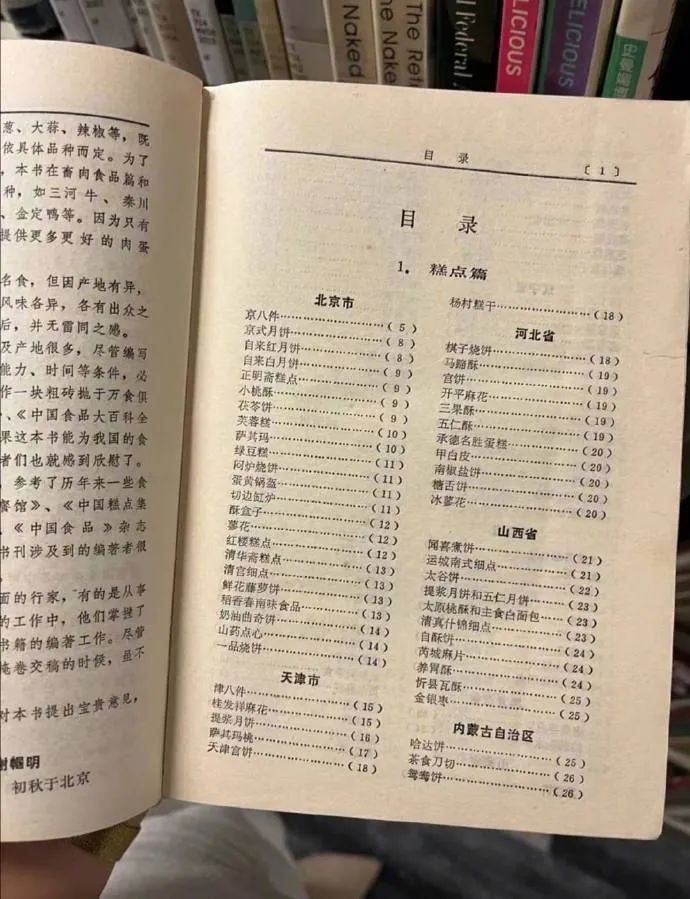 The Naked
The Naked
Federal
DELICIOUS
ELICIOUS
葱、大蒜、辣椒等，既
依具体品种而定。为了
，本书在畜肉食品篇和
种，如三河牛、秦川
、金定鸭等。因为只有
提供更多更好的肉蛋
名食，但因产地有异，
风味各异，各有出众之
后，并无雷同之感。
及产地很多，尽管编写
能力、时间等条件，必
作一块粗砖抛于万食俱
、《中国食品大百科全
果这本书能为我国的食
者们也就感到欣慰了。
，参考了历年来一些食
餐馆》、《中国糕点集
《中国食品》杂志
书刊涉及到的编著者很
面的行家，有的是从事
的工作中，他们掌握了
书籍的编著工作。尽管
掩卷交稿的时候，虽不
对本书提出宝贵意见，
谢帼明
初秋于北京
目录
〔1〕
目录
1．糕点篇
北京市
京八件………………（5）
京式月饼………………（8）
自来红月饼………………（8）
自来白月饼………………（9）
正明斋糕点………………（9）
小桃酥………………（9）
茯苓饼………………（9）
芙蓉糕………………（10）
萨其玛………………（10）
绿豆糕………………（11）
闷炉烧饼………………（11）
蛋黄锅盔………………（11）
切边缸炉………………（11）
酥盒子………………（12）
蓼花………………（12）
红楼糕点………………（12）
清华斋糕点………………（13）
清宫细点………………（13）
鲜花藤萝饼………………（13）
稻香春南味食品………………（13）
奶油曲奇饼………………（14）
山药点心………………（14）
一品烧饼………………（14）
天津市
津八件………………（15）
桂发祥麻花………………（15）
提浆月饼………………（16）
萨其玛桃………………（17）
天津宫饼………………（18）
杨村糕干………………（18）
河北省
棋子烧饼………………（18）
马蹄酥………………（19）
宫饼………………（19）
开平麻花………………（19）
三果酥………………（19）
五仁酥………………（19）
承德名胜蛋糕………………（20）
甲白皮………………（20）
南椒盐饼………………（20）
糖舌饼………………（20）
冰蓼花………………（20）
山西省
闻喜煮饼………………（21）
运城南式细点………………（21）
太谷饼………………（22）
提浆月饼和五仁月饼………………（23）
太原桃酥和主食白面包………………（23）
清真什锦细点………………（23）
自酥饼………………（24）
芮城麻片………………（24）
养胃酥………………（24）
忻县瓦酥………………（25）
金银枣………………（25）
内蒙古自治区
哈达饼………………（25）
茶食刀切………………（26）
鸳鸯饼………………（26）